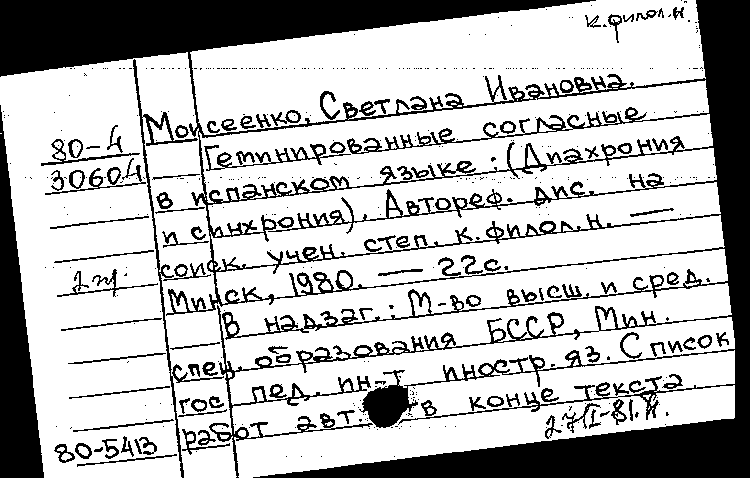 к.филол.н.
Моисеенко, Светлана Ивановна.
80-4
30604
Геминированные согласные
в испанском языке: (Диахрония
и синхрония). Автореф. дис. на
соиск. учен. степ. к.филол.н. —
2 эк.
Минск, 1980. — 22с.
В надзаг.: М-во высш. и сред.
спец. образования БССР, Мин.
гос пед. ин-т иностр. яз. Список
работ авт. в конце текста
80-5413